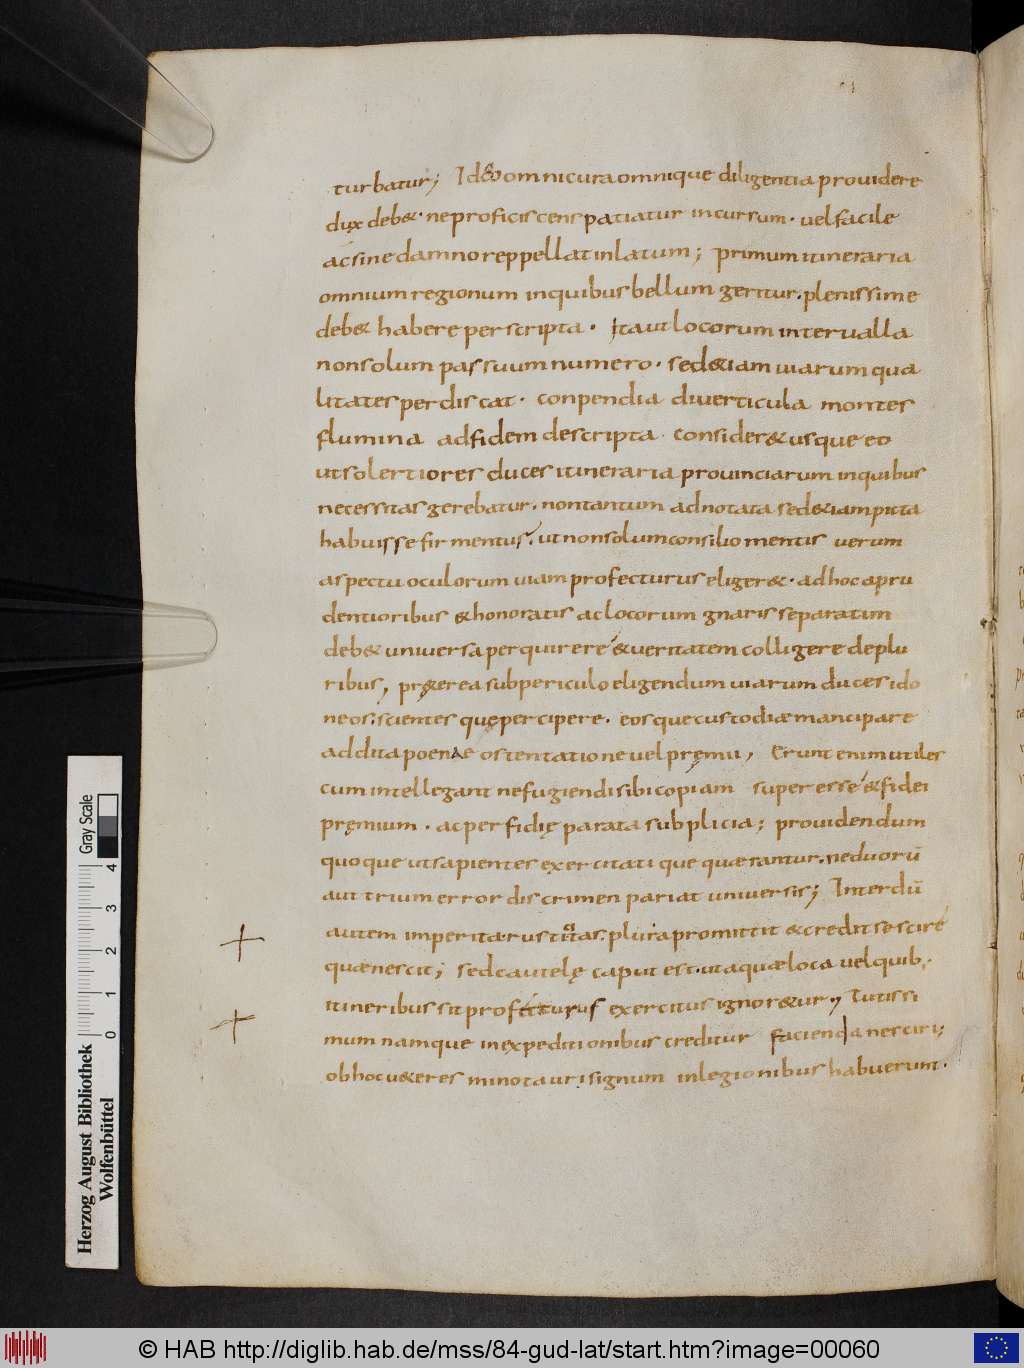 turbatur; Ideo omni cura omnique diligentia prouidere
dux deb&. ne proficiscens patiatur incursum. uel facile
ac sine damno reppellat inlatum; primum itineraria
omnium regionum inquibus bellum geritur. plenissime
deb& habere perscripta. Ita ut locorum interualla
non solum passuum numero. sed &iam uiarum qua
litates perdiscat. conpendia diuerticula montes
flumina ad fidem descripta. consider& usque eo
ut solertiores duces itineraria prouinciarum inquibus
necessitas gerebatur. non tantum adnotata sed &iam picta
habuisse firmentus. ut non solum consilio mentis uerum
aspectu oculorum uiam profecturus eliger&. ad hoc apru
dentioribus & honoratis ac locorum gnaris separatim
deb& uniuersa perquirere & ueritatem colligere deplu
ribus, pr&erea sub periculo eligendum uiarum duces ido
neos. scientes quę percipere. eosque custodiae mancipare
addita poenae ostentatione uel pręmii, Erunt enim utiles
cum intellegant ne fugiendi sibi copiam superesse & fidei
pręmium. ac perfidię parata supplicia; prouidendum
quoque ut sapientes exercitatique quaerantur. ne duorū
aut trium error discrimen pariat uniuersis; Interdū
autem imperita rusticitas. plura promittit & credit se scire
quae nescit; sed cautelę caput est. ut aquae loca uel quib.
itineribus sit profecturus exercitus ignor&ur, Tutissi
mum namque in expeditionibus creditur facienda nesciri;
ob hoc u&eres minotauri signum in legionibus habuerunt.
Herzog August Bibliothek
Wolfenbüttel
0 1 2 3 4
Gray Scale
© HAB http://diglib.hab.de/mss/84-gud-lat/start.htm?image=00060